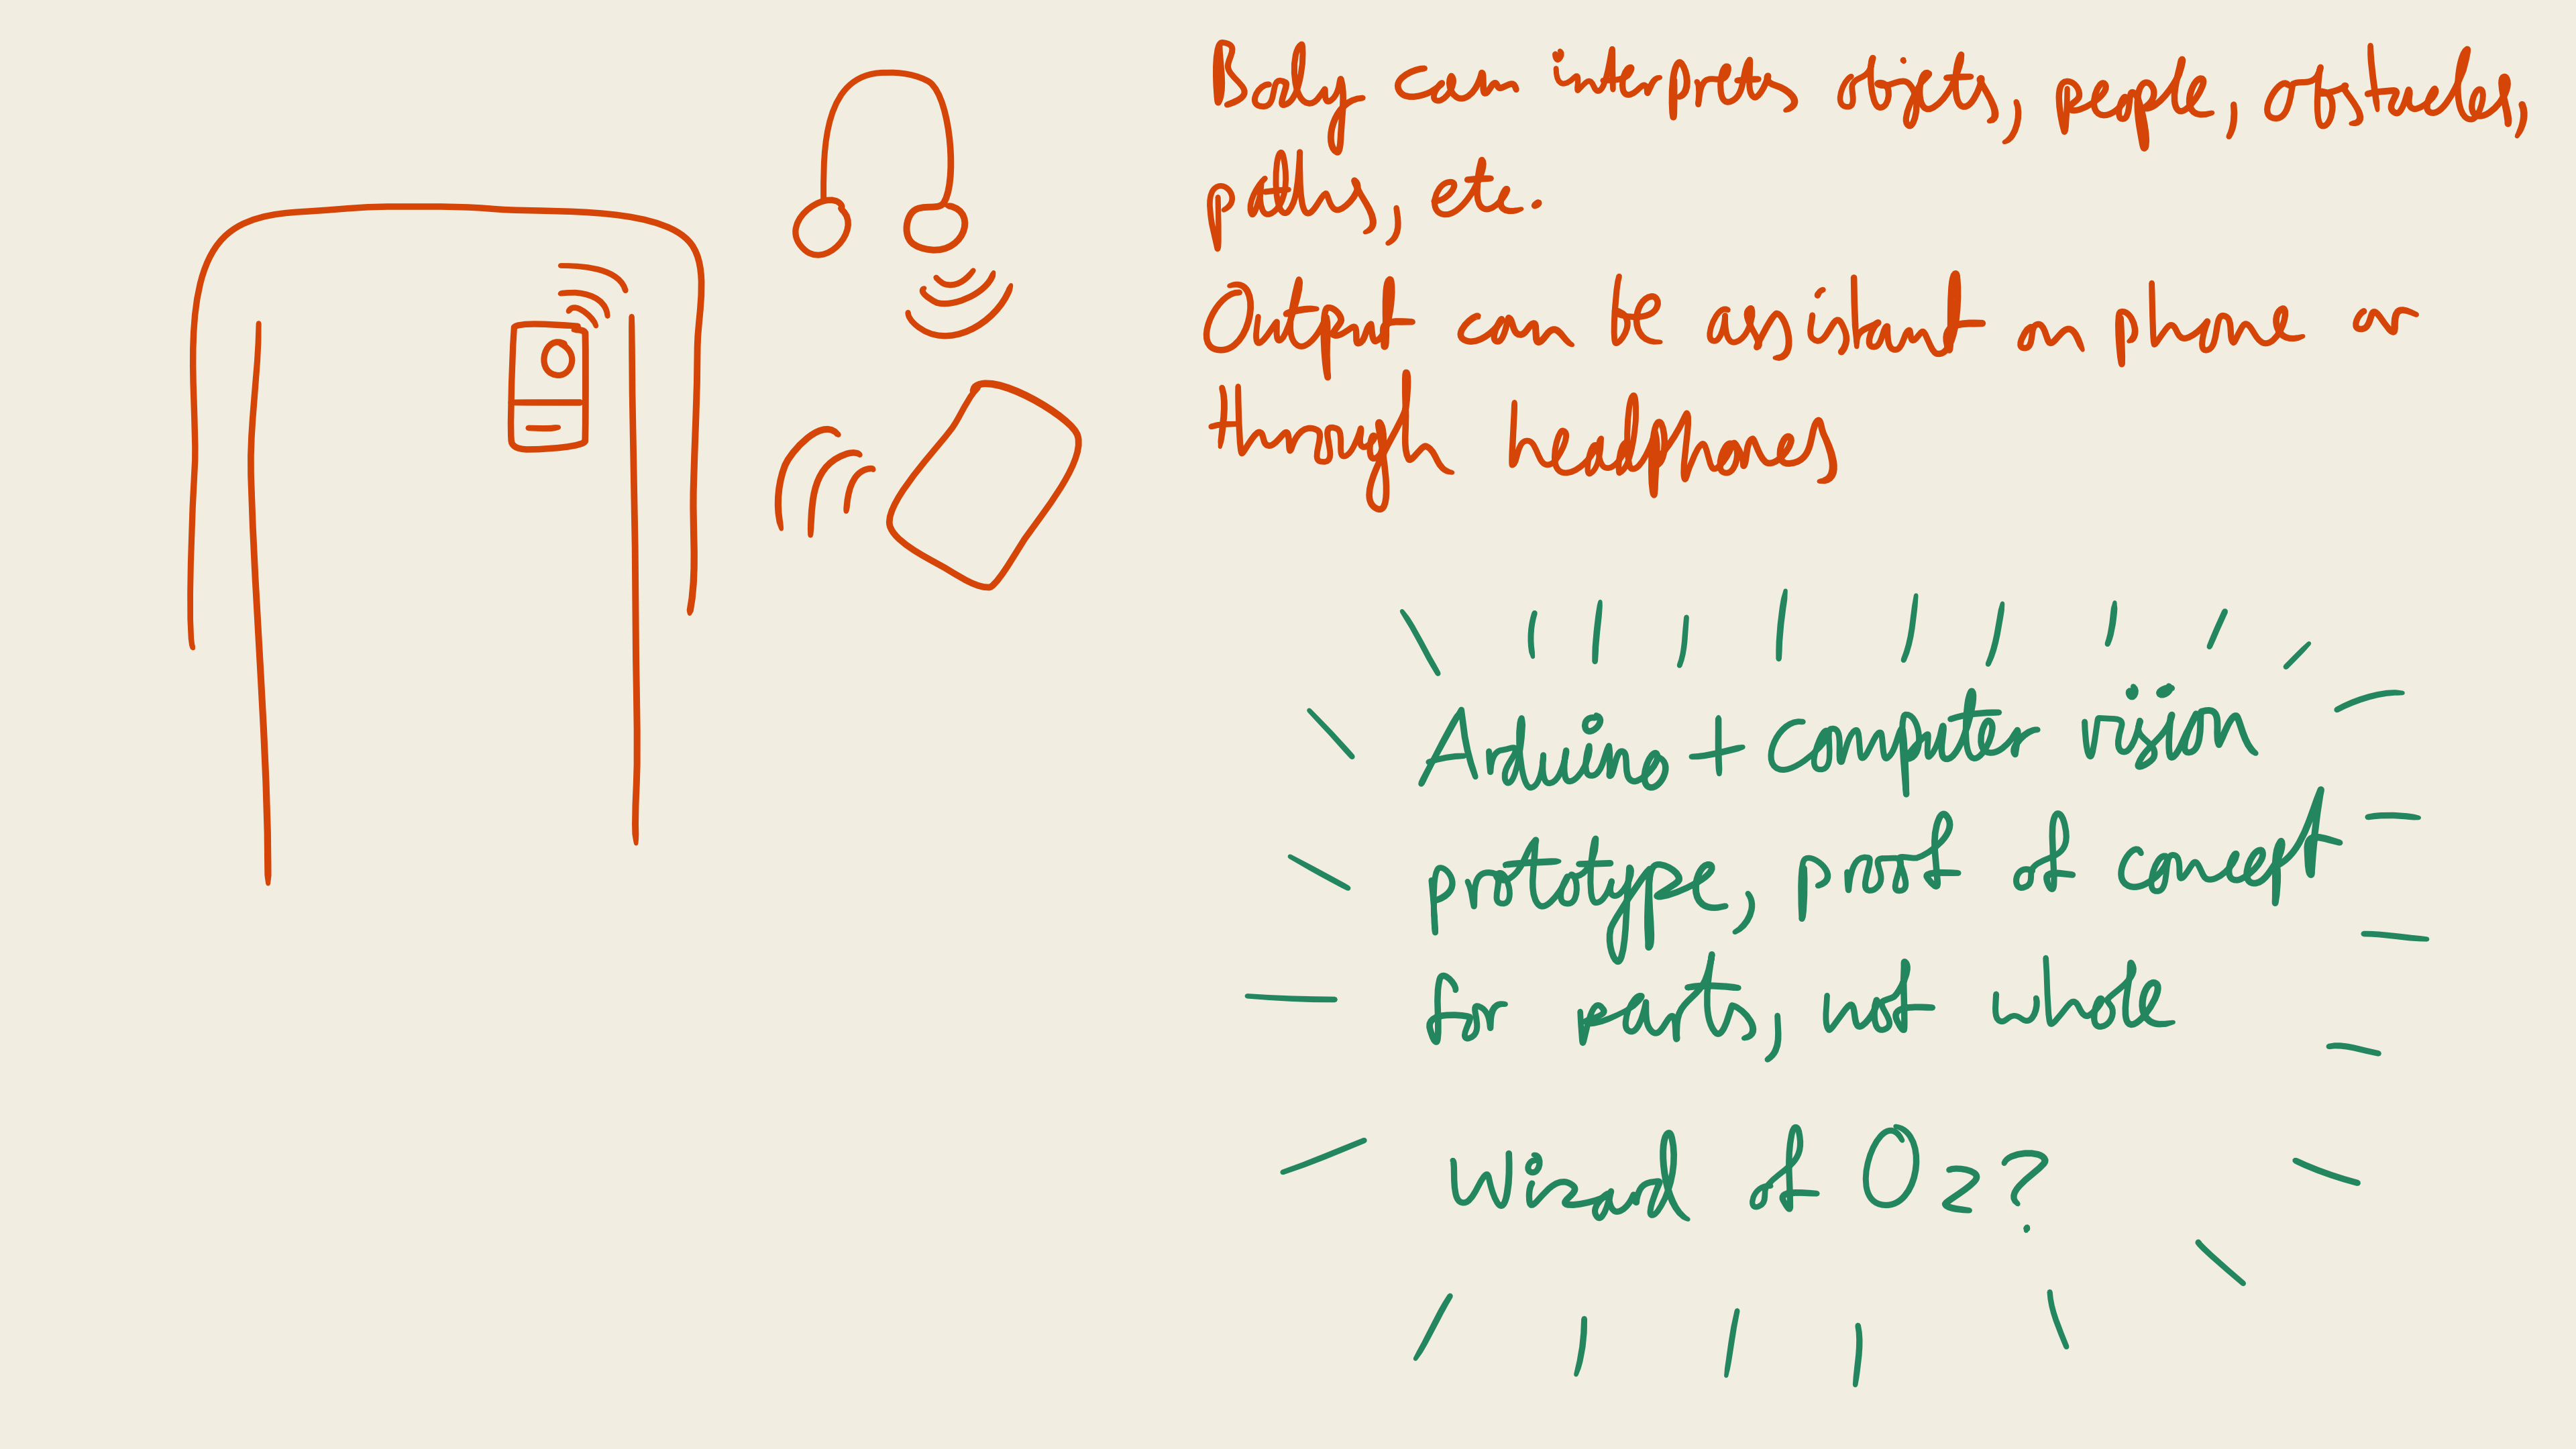 Body cam interprets objects, people, obstacles,
paths, etc.
Output can be assistant on phone or
through headphones
Arduino + Computer vision
prototype, proof of concept
for parts, not whole
Wizard of Oz?